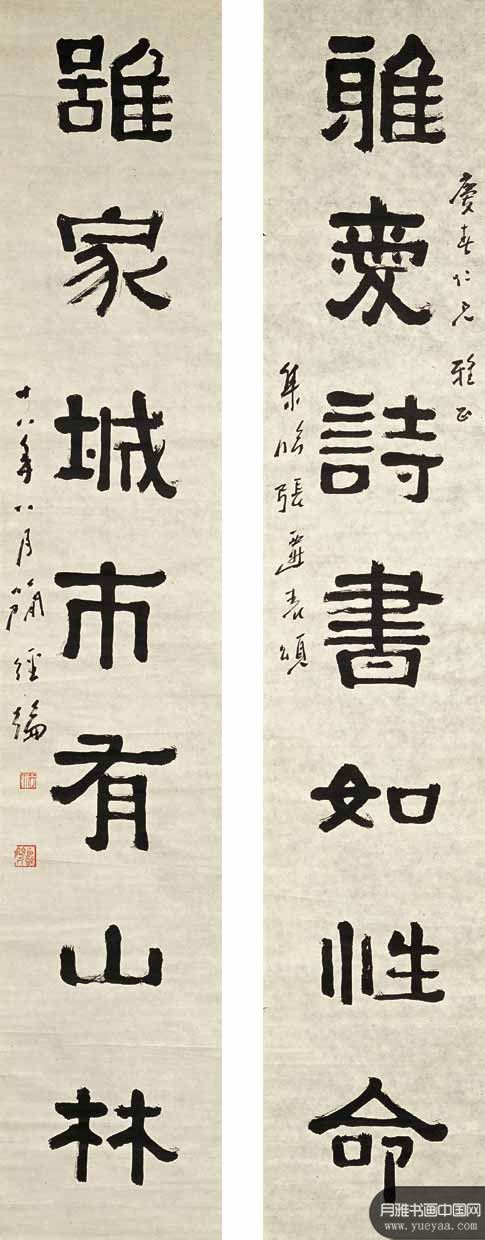 慶春仁兄雅正
雅愛詩書如性命
集臨張遷表頌
雖家城市有山林
十八年八月簡經綸
月雅书画中国网
www.yueyaa.com